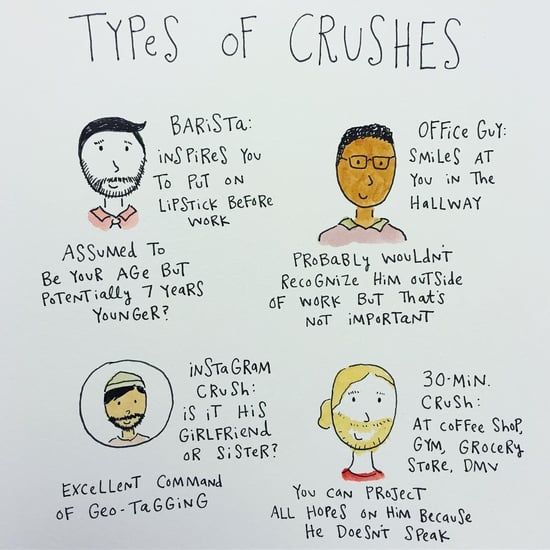 TYPES OF CRUSHES
BARISTA:
INSPIRES YOU
TO PUT ON
LIPSTICK BEFORE
WORK
ASSUMED TO
BE YOUR AGE BUT
POTENTIALLY 7 YEARS
YOUNGER?
OFFICE GUY:
SMILES AT
YOU IN THE
HALLWAY
PROBABLY WOULDN'T
RECOGNIZE HIM OUTSIDE
OF WORK BUT THAT'S
NOT IMPORTANT
INSTAGRAM
CRUSH:
IS IT HIS
GIRLFRIEND
OR SISTER?
EXCELLENT COMMAND
OF GEO-TAGGING
30-MIN.
CRUSH:
AT COFFEE SHOP,
GYM, GROCERY
STORE, DMV
YOU CAN PROJECT
ALL HOPES ON HIM BECAUSE
HE DOESN'T SPEAK